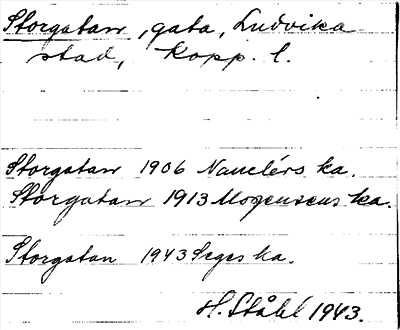 Storgatan, gata, Ludvika
stad, Kopp. l.
Storgatan 1906 Nauclérs ka.
Storgatan 1913 Mogensens ka.
Storgatan 1943 Seges ka.
H. Ståhl 1943.